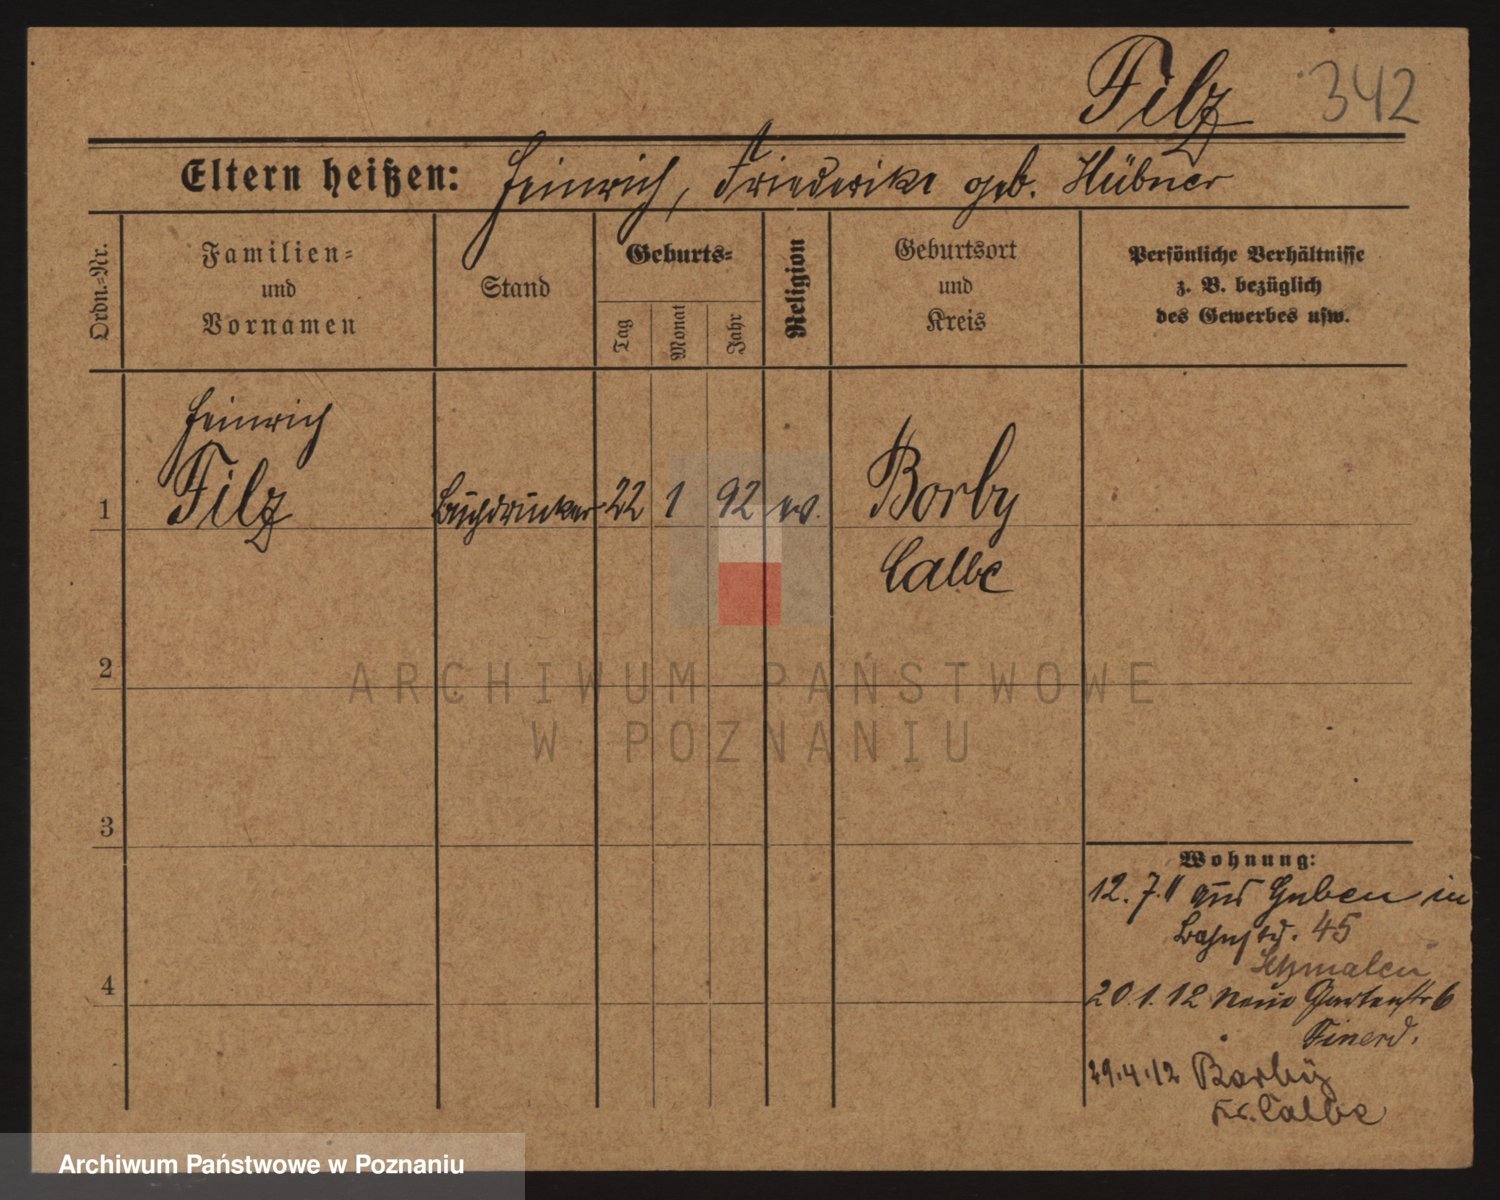 Filz 342
Eltern heißen: Heinrich, Friederike geb. Hübner
Ordn.=Nr.
Familien=
und
Vornamen
Stand
Geburts=
Tag
Monat
Jahr
Religion
Geburtsort
und
Kreis
Persönliche Verhältnisse
z. B. bezüglich
des Gewerbes usw.
Heinrich
1 Filz Buchdrucker 22 1 92 ev. Borby
Calbe
2
ARCHIWUM PAŃSTWOWE
W POZNANIU
3
Wohnung:
12.7.11 aus Guben in
Bahnstr. 45
4
20.1.12 Neue Gartenstr 6
29.4.12 Barby
Kr. Calbe
Archiwum Państwowe w Poznaniu